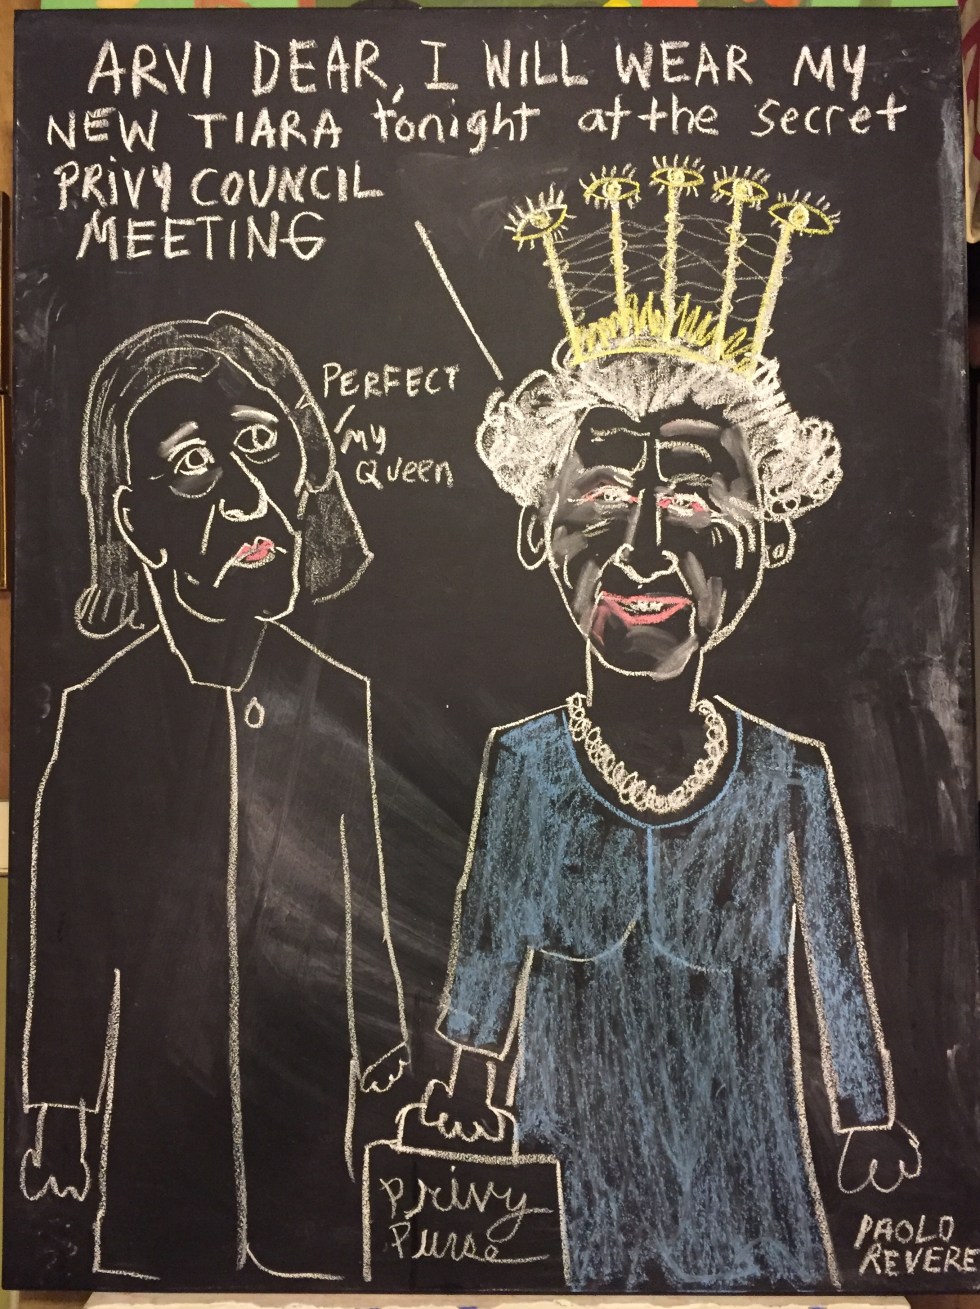 ARVI DEAR, I WILL WEAR MY
NEW TIARA tonight at the secret
PRIVY COUNCIL
MEETING
PERFECT
MY
Queen
Privy
Purse
PAOLO
REVERE